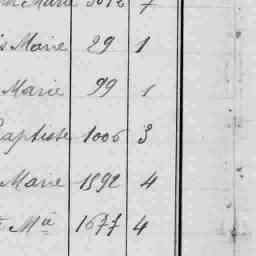 Marie 3012 7
is Marie 29 1
Marie 99 1
Baptiste 1006 3
Marie 1592 4
Mie 1677 4